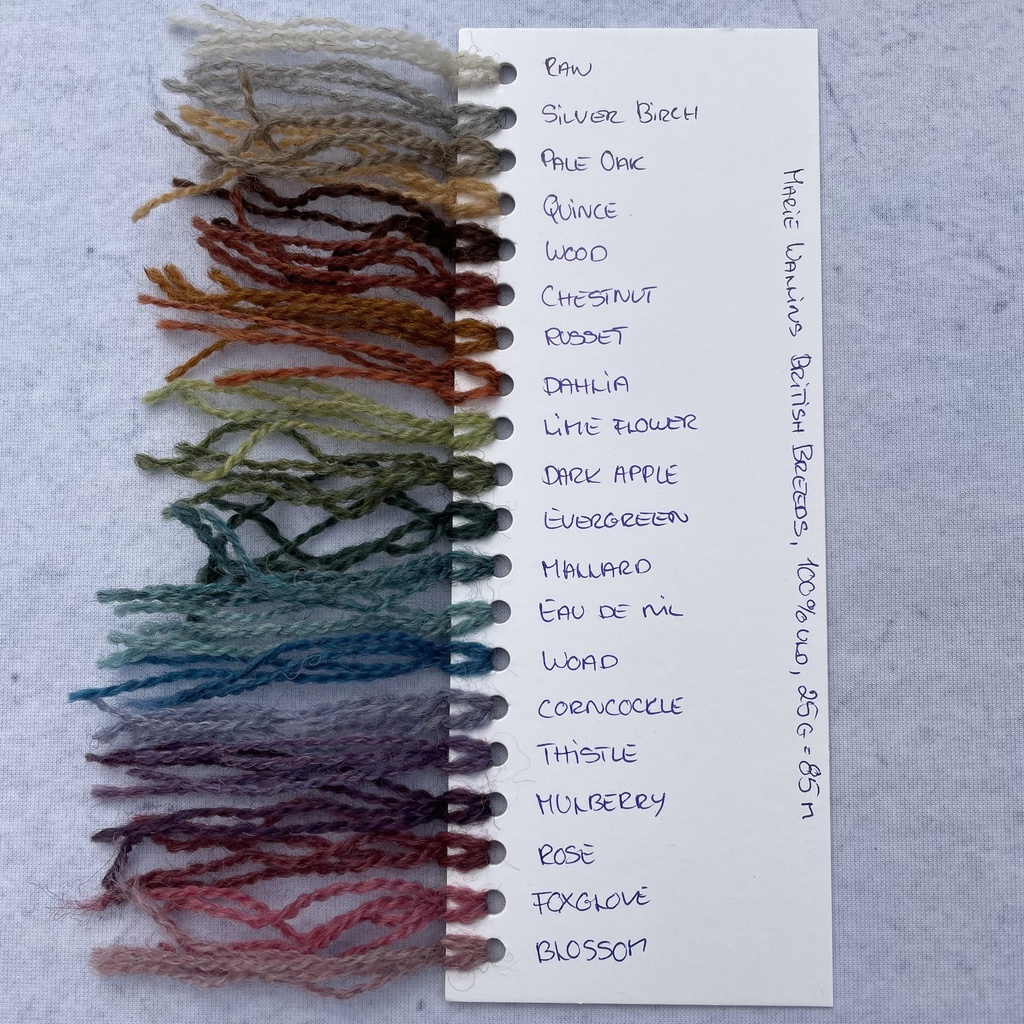 RAW
SILVER BIRCH
PALE OAK
QUINCE
WOOD
CHESTNUT
RUSSET
DAHLIA
LIME FLOWER
DARK APPLE
EVERGREEN
MALLARD
EAU DE NIL
WOAD
CORNCOCKLE
THISTLE
MULBERRY
ROSE
FOXGLOVE
BLOSSOM
MARIE WALLIN'S BRITISH BREEDS, 100% ULD, 25G = 85 M